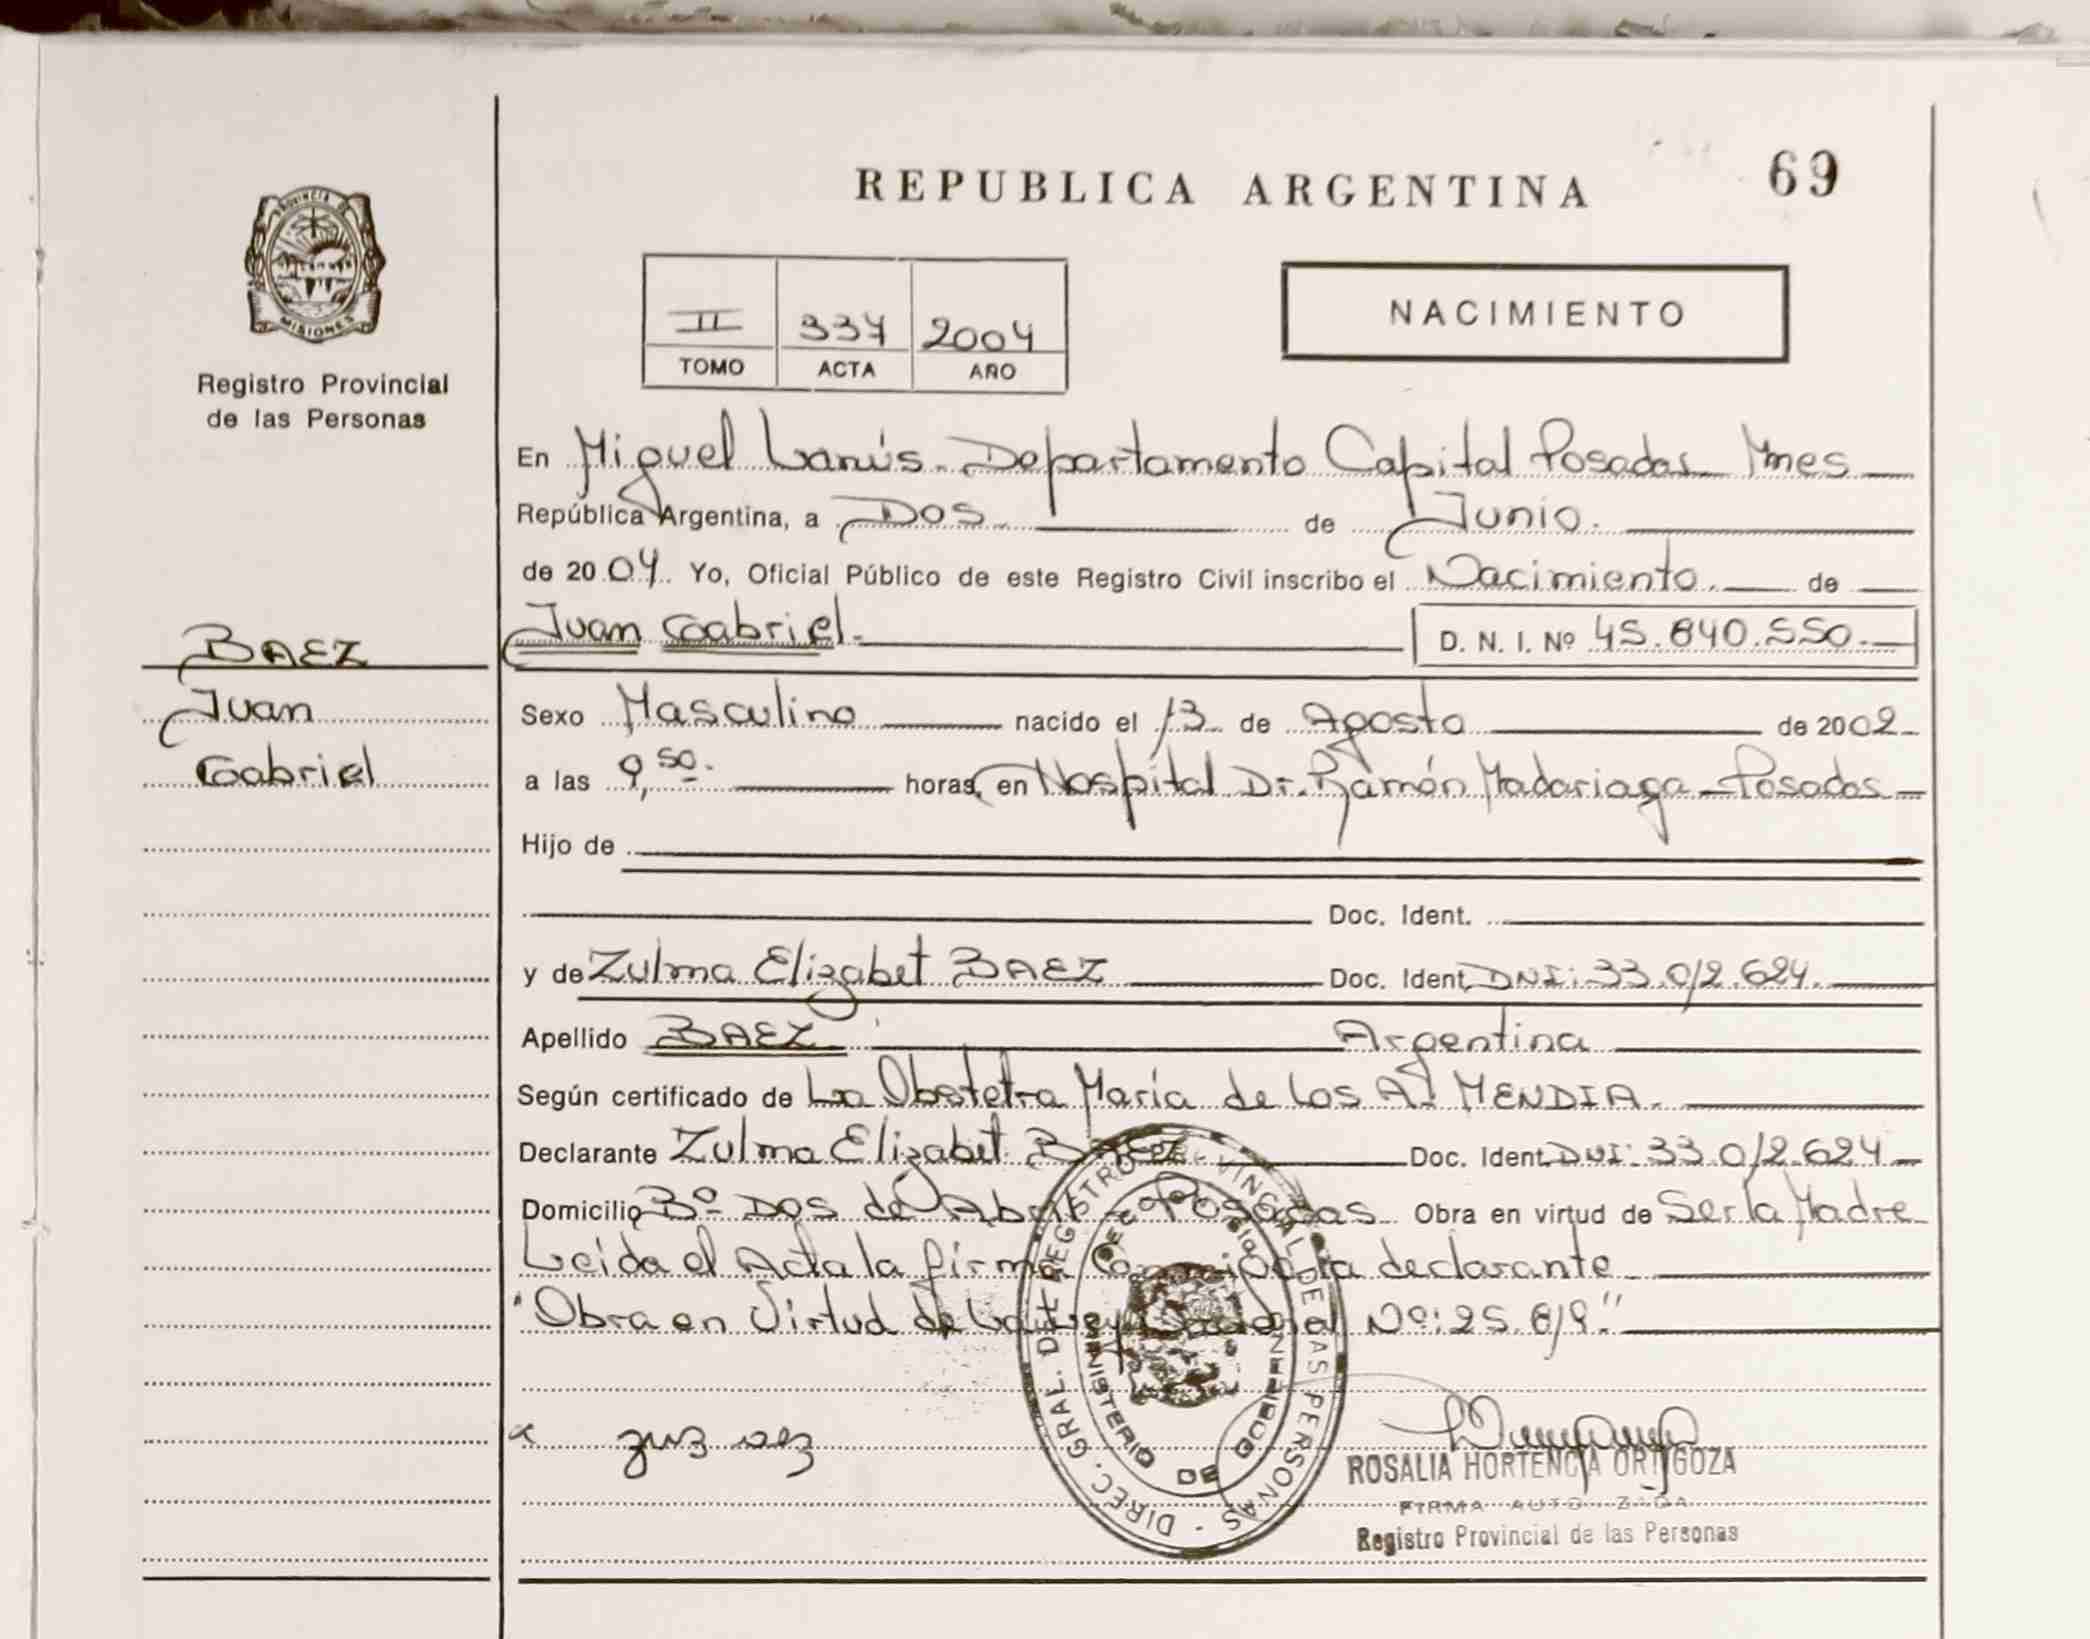 REPUBLICA ARGENTINA
69
PROVINCIA DE MISIONES
Registro Provincial
de las Personas
II 337 2004
TOMO ACTA AÑO
NACIMIENTO
En Miguel Lanús. Departamento Capital Posadas Mnes
República Argentina, a Dos de Junio.
de 2004. Yo, Oficial Público de este Registro Civil inscribo el Nacimiento. de
Juan Gabriel. D. N. I. Nº 45.840.550.
BAEZ
Juan
Gabriel
Sexo Masculino nacido el 13 de Agosto de 2002
a las 9,50. horas, en Hospital Dr. Ramón Madariaga - Posadas
Hijo de
Doc. Ident.
y de Zulma Elizabet BAEZ Doc. Ident. DNI: 33.012.624.
Apellido BAEZ Argentina
Según certificado de La Obstetra María de los A. MENDIA.
Declarante Zulma Elizabet BAEZ Doc. Ident. DNI: 33.012.624
Domicilio Bº Dos de Abril - Posadas Obra en virtud de Ser la Madre
Leída el Acta la firma Conmigo la declarante
"Obra en Virtud de la Ley Nacional Nº: 25.819"
DIREC. GRAL. DEL REGISTRO PROVINCIAL DE LAS PERSONAS
MINISTERIO DE GOBIERNO
x
ROSALIA HORTENCIA ORTIGOZA
FIRMA AUTORIZADA
Registro Provincial de las Personas